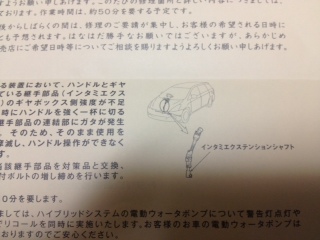 ております。作業時間は、約50分を要する予定です。
後からしばらくの間は、修理のご要請が集中し、お客様の希望される日時に
とも予想されます。はなはだ勝手なお願いではございますが、あらかじめ
売店にご希望日時等についてご相談を賜りますようよろしくお願い申しあげます。
る装置において、ハンドルとギヤ
ている継手部品(インタミエクス
)のギヤボックス側強度が不足
時にハンドルを強く一杯に切る
継手部品の連結部にガタが発生
。そのため、そのまま使用を
摩滅し、ハンドル操作ができなく
インタミエクステンションシャフト
当該継手部品を対策品と交換、
付ボルトの増し締めを行います。
0分を要します。
ましては、ハイブリッドシステムの電動ウォータポンプについて警告灯点灯や
でリコールを同時に実施いたします。お客様のお車の電動ウォータポンプは
おりますのでご安心ください。